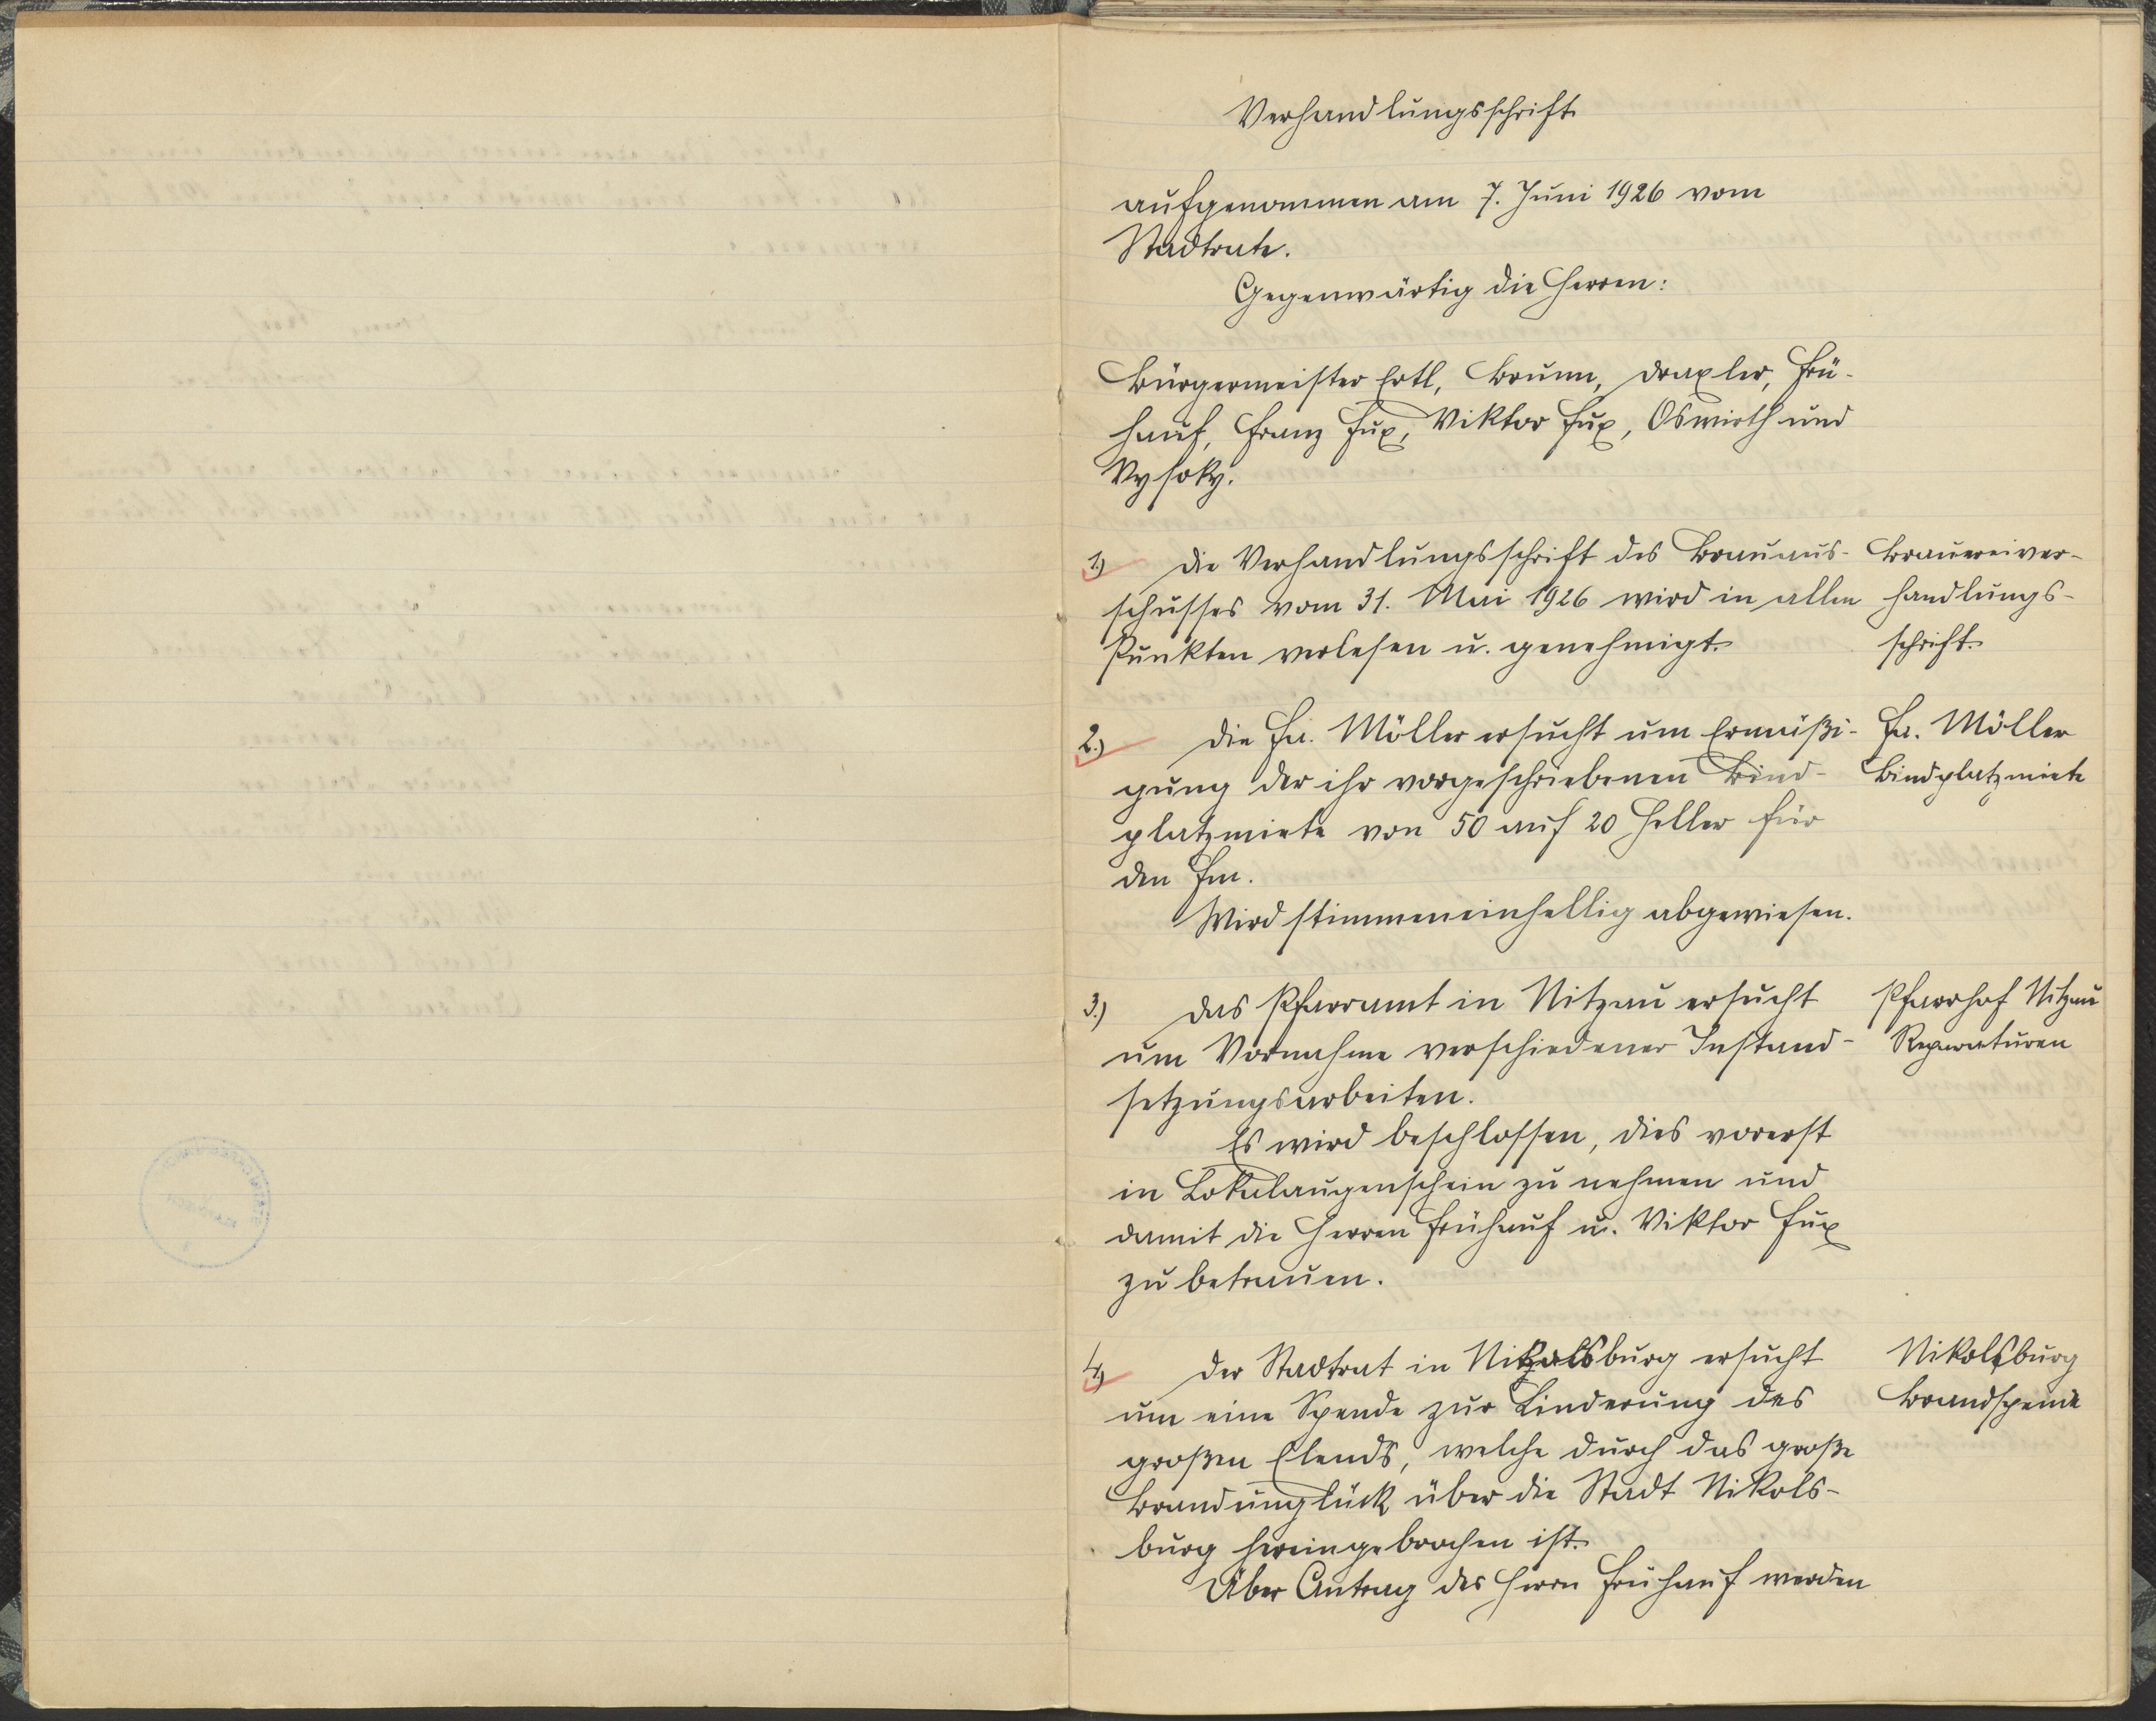 Verhandlungsschrift
aufgenommen am 7. Juni 1926 vom
Stadtrate.
Gegenwärtig die Herren:
Bürgermeister Ertl, Brunn, Draxler, Frü-
hauf, Franz Fux, Viktor Fux, Oswirth und
Vysoky.
1.) Die Verhandlungsschrift des Brauaus-
schusses vom 31. Mai 1926 wird in allen
Punkten verlesen u. genehmigt.
Brauereiver-
handlungs-
schrift.
2.) Die Fa. Möller ersucht um Ermäßi-
gung der ihr vorgeschriebenen Bind-
platzmiete von 50 auf 20 Heller für
den Fm.
Wird stimmeneinhellig abgewiesen.
Fa. Möller
Bindplatzmiete
3.) Das Pfarramt in Nitzau ersucht
um Vornahme verschiedener Instand-
setzungsarbeiten.
Es wird beschlossen, dies vorerst
in Lokalaugenschein zu nehmen und
damit die Herren Frühauf u. Viktor Fux
zu betrauen.
Pfarrhof Nitzau
Reparaturen
4.) Der Stadtrat in Nikolsburg ersucht
um eine Spende zur Linderung des
großen Elends, welche durch das große
Brandunglück über die Stadt Nikols-
burg hereingebrochen ist.
Über Antrag des Herrn Frühauf werden
Nikolsburg
Brandspende